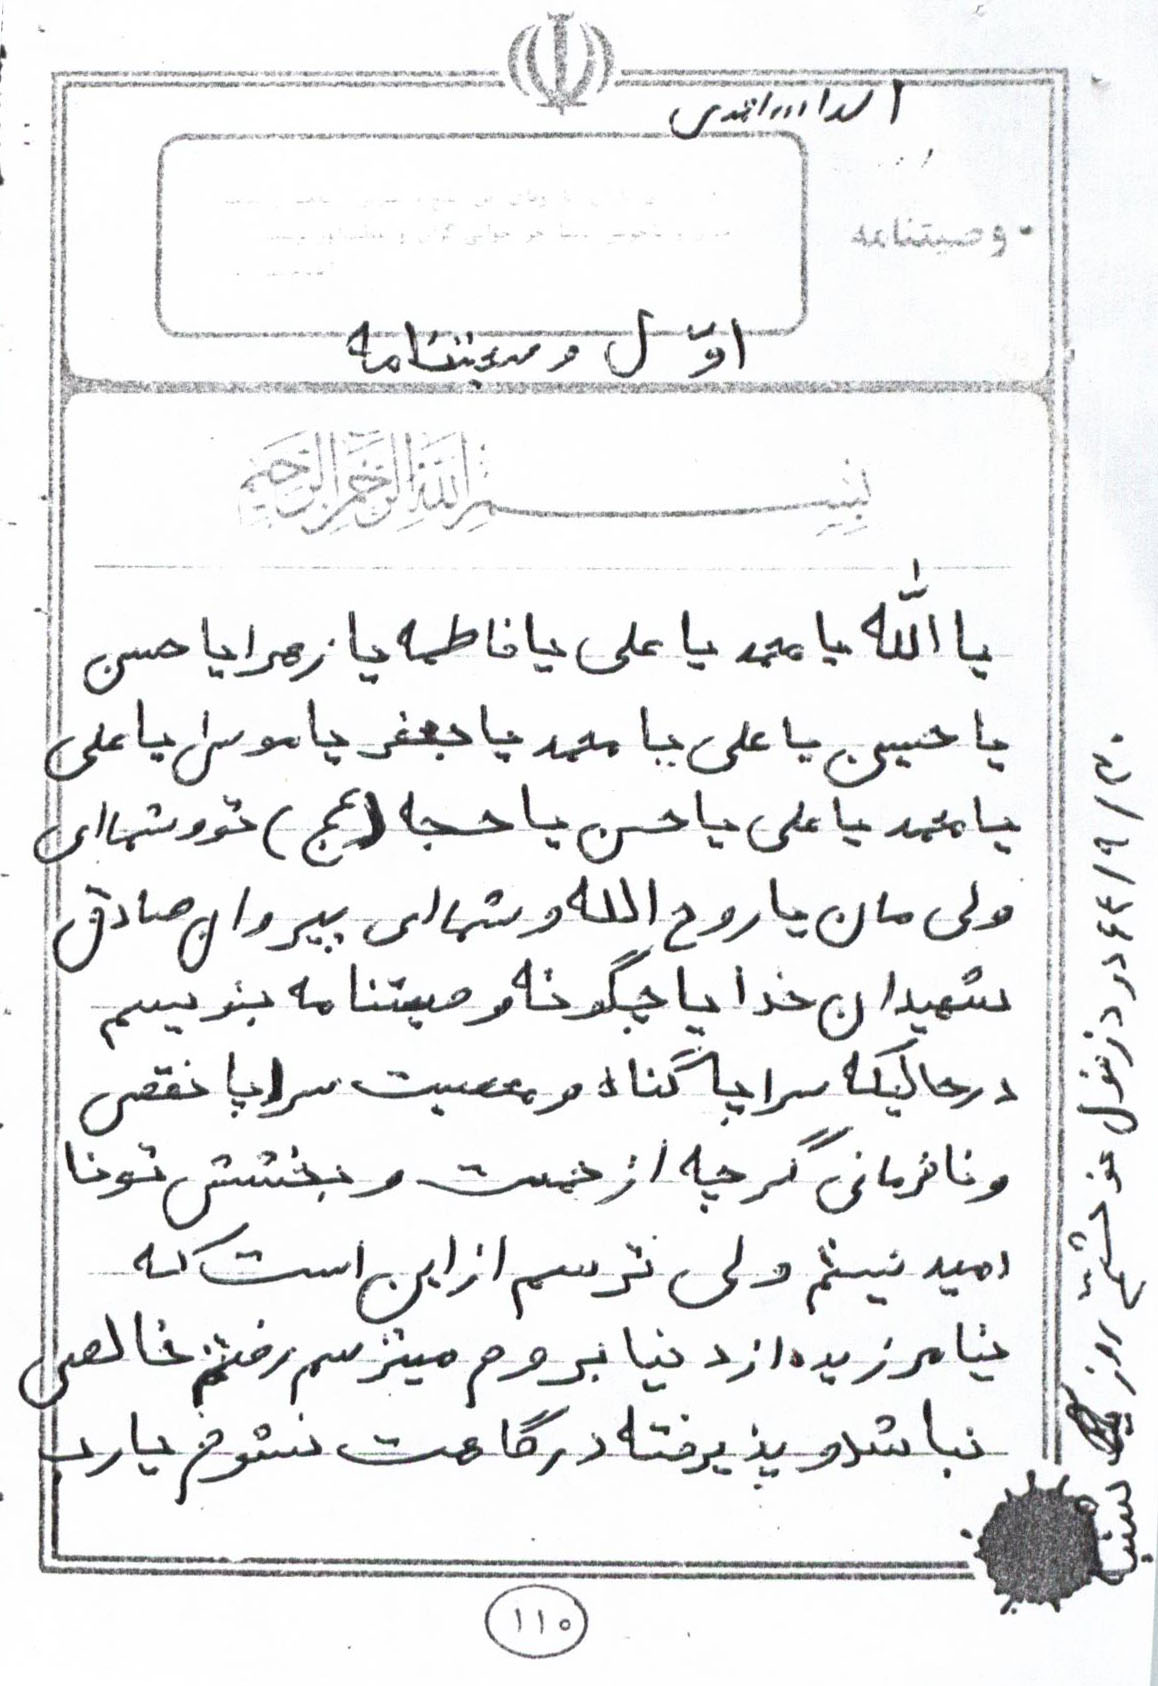 وصیتنامه
اوّل وصیتنامه
بسم الله الرحمن الرحیم
یا الله یا محمد یا علی یا فاطمه یا زهرا یا حسن
یا حسین یا علی یا محمد یا جعفر یا موسی یا علی
یا محمد یا علی یا حسن یا حجه (عج) تو و شما ای
ولی مان یا روح الله و شما ای پیروان صادق
شهیدان خدایا چگونه وصیتنامه بنویسم
درحالیکه سراپا گناه و معصیت سراپا نقص
و نافرمانی گرچه از رحمت و بخشش تو نا
امید نیستم ولی ترسم از این است که
نیامرزیده از دنیا بروم میترسم رفتنم خالص
نباشد و پذیرفته درگاهت نشوم یا رب
۱۱۰
۶۴/۹/۳۰ در دزفول روز شنبه